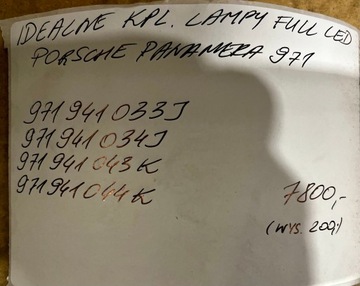 IDEALNE KPL. LAMPY FULL LED
PORSCHE PANAMERA 971
971941033J
971941034J
971941043K
971941044K
7800,-
(WYS. 200,-)